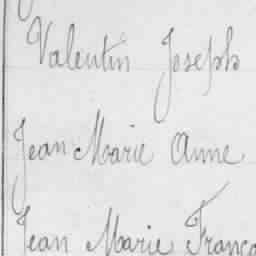 Valentin Joseph
Jean Marie Anne
Jean Marie Franço